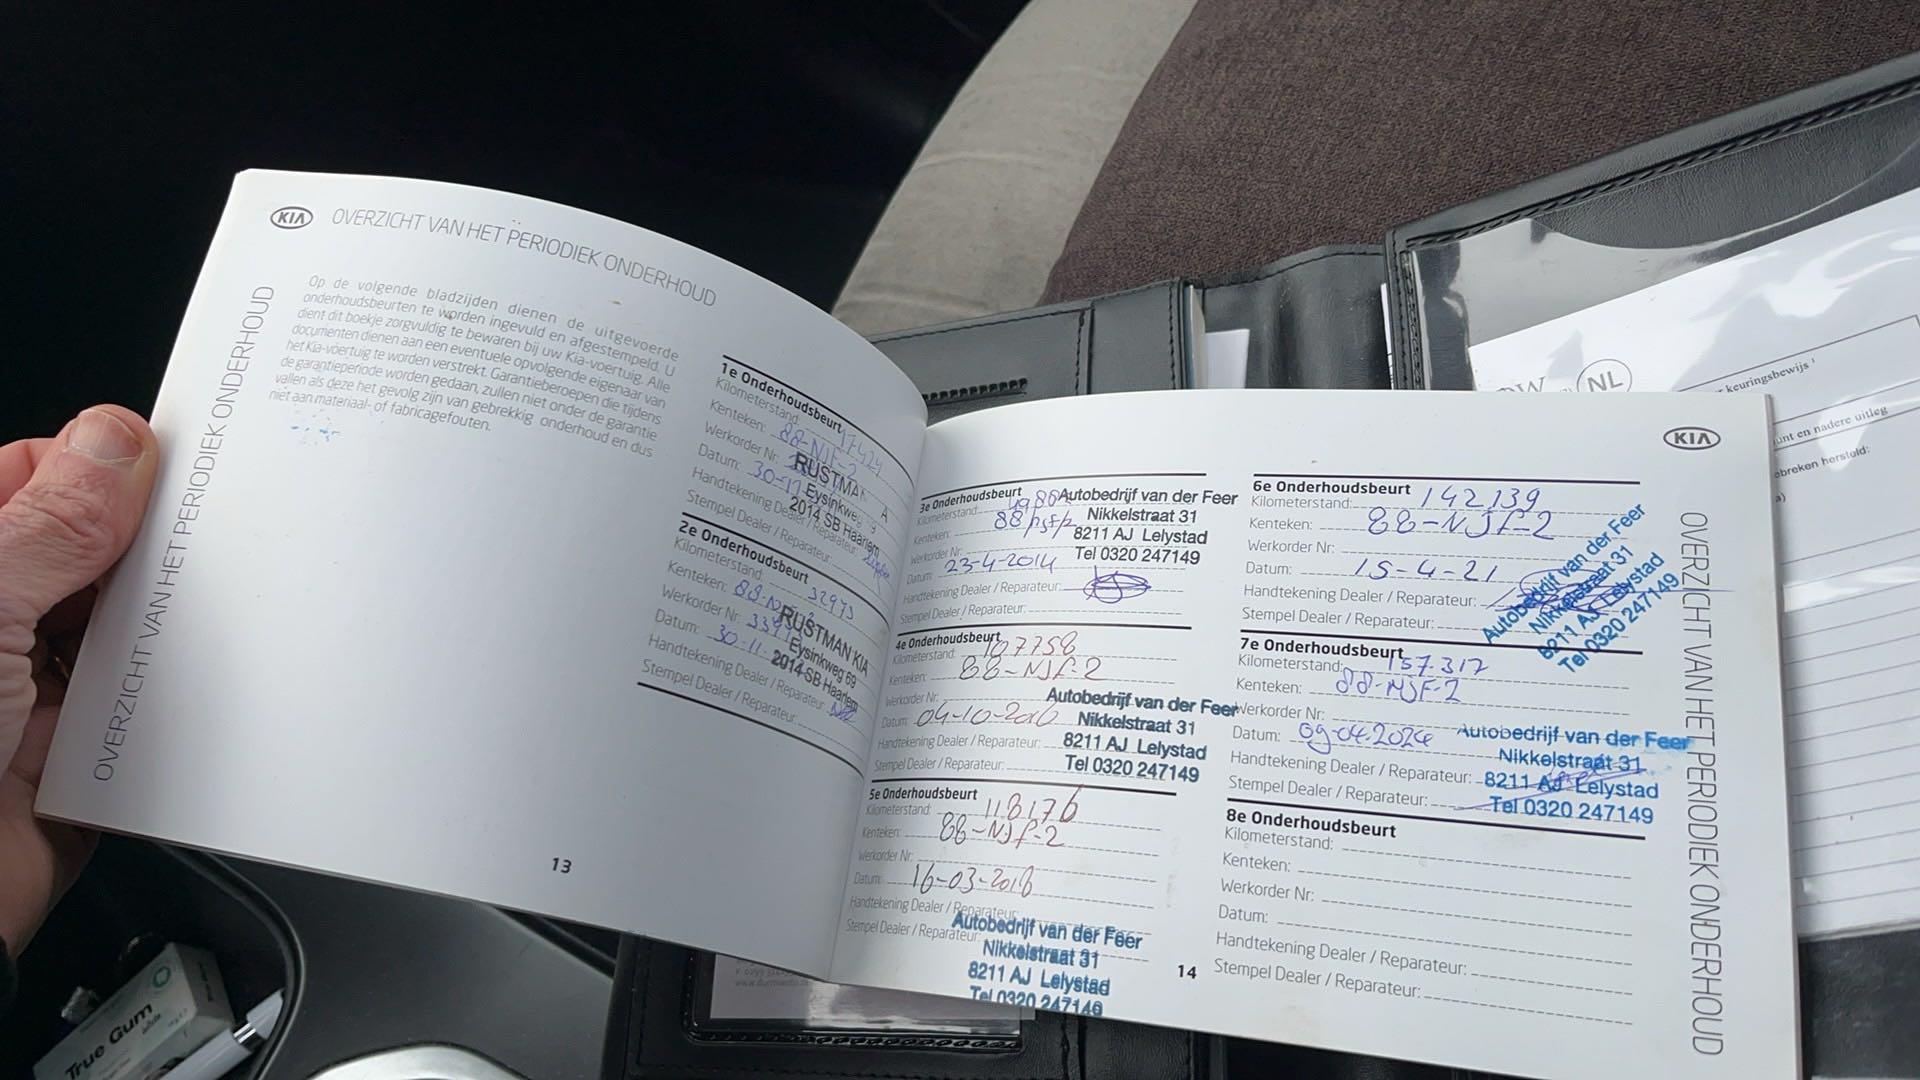 KIA
OVERZICHT VAN HET PERIODIEK ONDERHOUD
OVERZICHT VAN HET PERIODIEK ONDERHOUD
Op de volgende bladzijden dienen de uitgevoerde
onderhoudsbeurten te worden ingevuld en afgestempeld. U
dient dit boekje zorgvuldig te bewaren bij uw Kia-voertuig. Alle
documenten dienen aan een eventuele opvolgende eigenaar van
het Kia-voertuig te worden verstrekt. Garantieberoepen die tijdens
de garantieperiode worden gedaan, zullen niet onder de garantie
vallen als deze het gevolg zijn van gebrekkig onderhoud en dus
niet aan materiaal- of fabricagefouten.
1e Onderhoudsbeurt
Kilometerstand 17424
Kenteken: 88-NJF-2
Werkorder Nr:
Datum: 30-11
Handtekening Dealer / Reparateur:
Stempel Dealer / Reparateur:
RUSTMAN
Eysinkweg 69
2014 SB Haarlem
2e Onderhoudsbeurt
Kilometerstand: 32973
Kenteken: 88-N
Werkorder Nr:
Datum: 30-11
Handtekening Dealer / Reparateur:
Stempel Dealer / Reparateur:
RUSTMAN KIA
Eysinkweg 69
2014 SB Haarlem
13
3e Onderhoudsbeurt
Kilometerstand:
Kenteken:
Werkorder Nr:
Datum: 23-4-2014
Handtekening Dealer / Reparateur:
Stempel Dealer / Reparateur:
Autobedrijf van der Feer
Nikkelstraat 31
8211 AJ Lelystad
Tel 0320 247149
4e Onderhoudsbeurt
Kilometerstand: 107758
Kenteken: 88-NJF-2
Werkorder Nr:
Datum: 04-10-2016
Handtekening Dealer / Reparateur:
Stempel Dealer / Reparateur:
Autobedrijf van der Feer
Nikkelstraat 31
8211 AJ Lelystad
Tel 0320 247149
5e Onderhoudsbeurt
Kilometerstand: 118176
Kenteken: 88-NJF-2
Werkorder Nr:
Datum: 16-03-2018
Handtekening Dealer / Reparateur:
Stempel Dealer / Reparateur:
Autobedrijf van der Feer
Nikkelstraat 31
8211 AJ Lelystad
Tel 0320 247149
14
KIA
6e Onderhoudsbeurt
Kilometerstand: 142139
Kenteken: 88-NJF-2
Werkorder Nr:
Datum: 15-4-21
Handtekening Dealer / Reparateur:
Stempel Dealer / Reparateur:
Autobedrijf van der Feer
Nikkelstraat 31
8211 AJ Lelystad
Tel 0320 247149
7e Onderhoudsbeurt
Kilometerstand: 157.317
Kenteken: 88-NJF-2
Werkorder Nr:
Datum: 09-04-2024
Handtekening Dealer / Reparateur:
Stempel Dealer / Reparateur:
Autobedrijf van der Feer
Nikkelstraat 31
8211 AJ Lelystad
Tel 0320 247149
8e Onderhoudsbeurt
Kilometerstand:
Kenteken:
Werkorder Nr:
Datum:
Handtekening Dealer / Reparateur:
Stempel Dealer / Reparateur:
OVERZICHT VAN HET PERIODIEK ONDERHOUD
NL
keuringsbewijs
en nadere uitleg
True Gum